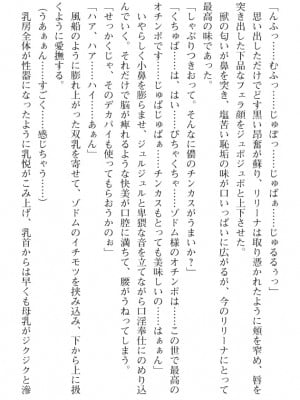 「んふっ……むふっ……じゅぽっ……っ……じゅるるぅっ」
思い出しただけでどす黒い昂奮が蘇り、リリーナは取り憑かれたように頬を窄め、唇を
突き出した下品なフェラ顔をジュポジュポと上下させた。
獣の匂いが鼻を突き、塩苦い恥垢の味が口いっぱいに広がるが、今のリリーナにとって
最高の味であった。
「しゃぶりつきおって。そんなに儂のチンカスがうまいか」
「くちゅぱ……は、はい……ぴちゃくちゃ……ゾドム様のオチンポは……この世で最高の
オチンポです……じゅぱじゅぱ……チンカスもとっても美味しいの……はぁぁん」
いやらしく小鼻を膨らませ、ジュルジュルと卑猥な音を立てながら口淫奉仕にのめり込
んでいく。それだけで脳が痺れるような快美が口腔に満ちて、腰がうねってしまう。
「せっかくじゃ、そのデカパイも使ってもらおうかのぉ」
「ハァ、ハァ……ハイ……あぁん」
風船のように膨れ上がった双乳を寄せて、ゾドムのイチモツを挟み込み、下から上に扱
くように愛撫する。
（うあぁぁん……すごく……感じちゃう……）
乳房全体が性器になったように乳悦がこみ上げ、乳首からは早くも母乳がジクジクと滲